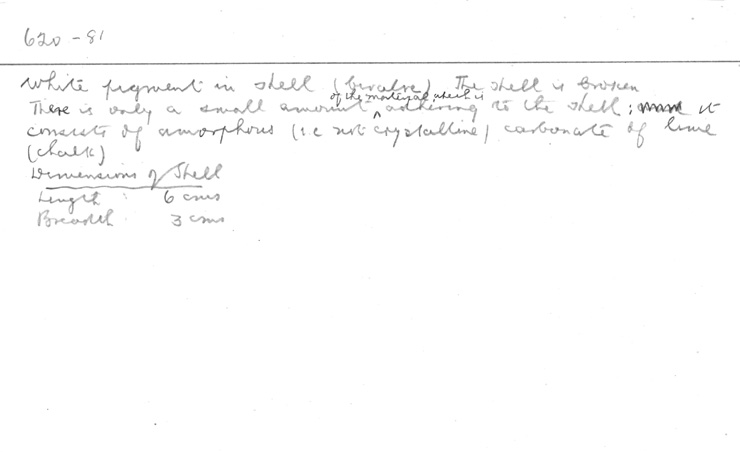 620-81
White pigment in shell (bivalve) The shell is broken
There is only a small amount of the material which is adhering to the shell; it
consists of amorphous (i.e not crystalline) carbonate of lime
(chalk)
Dimensions of Shell
Length : 6 cms
Breadth : 3 cms